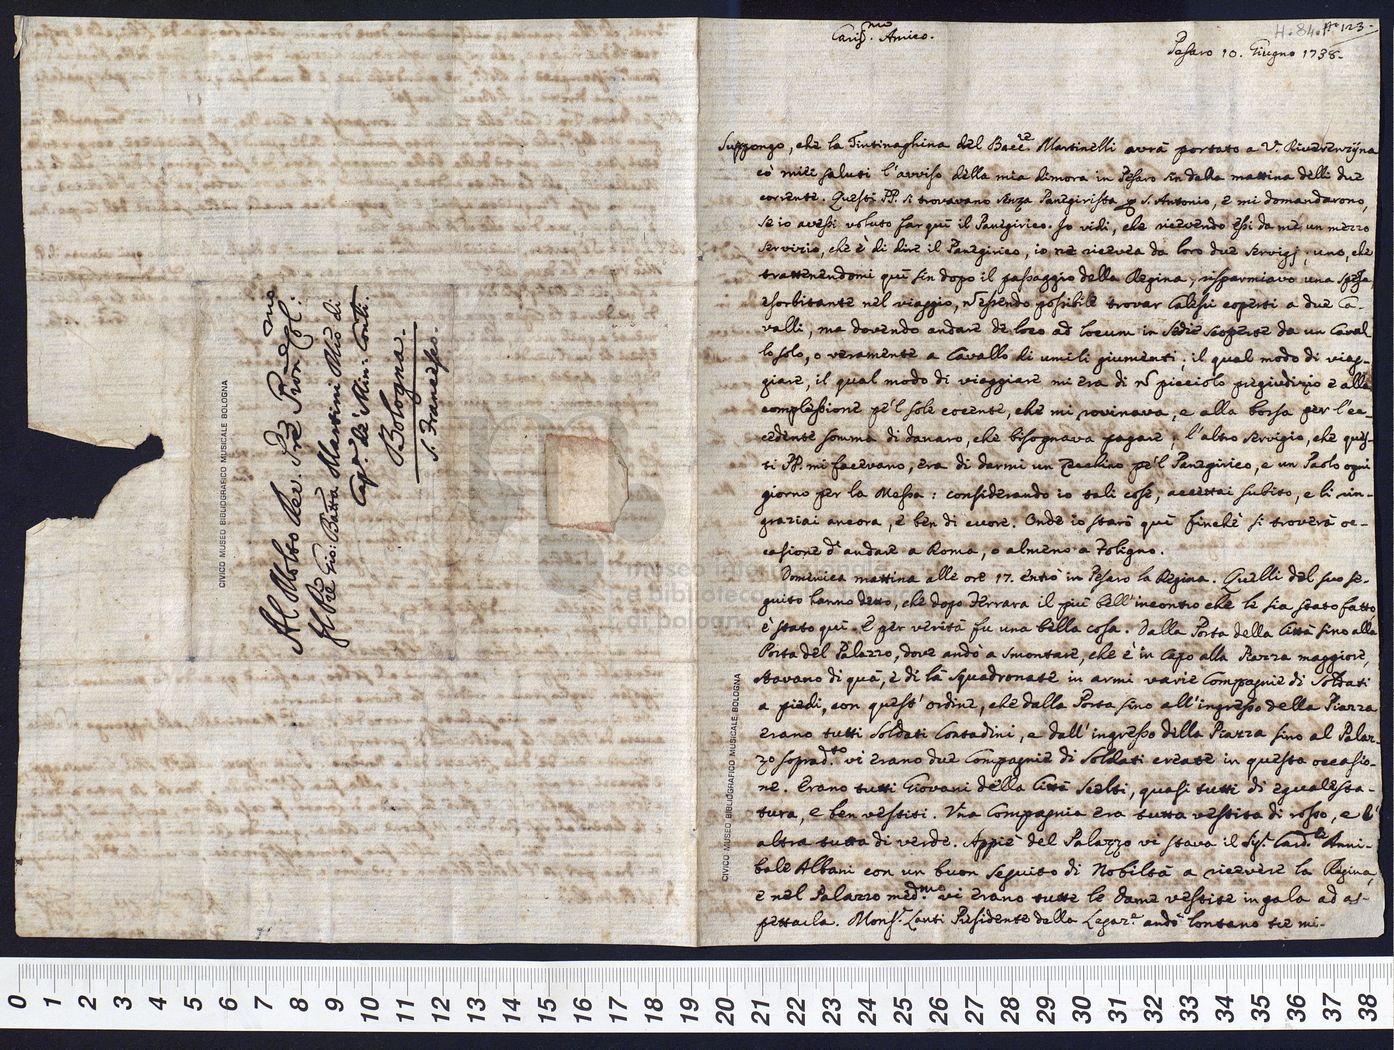 H. 84. N.o 123
Cariss.mo Amico.
Pesaro 10. Giugno 1738.
Suppongo, che la Tintinaghina del Bacc.re Martinelli avrà portato a V. Riverenzina
có miei saluti l'avviso della mia dimora in Pesaro sin dalla mattina delli due
corrente. Questi PP. si trovavano senza Panegirista p S. Antonio, e mi domandarono,
se io avessi voluto far quì il Panegirico. Io vidi, che ricevendo essi da me un mezzo
servizio, che è di dire il Panegirico, io ne riceveva da loro due servigj; uno, che
trattenendomi quì sin dopo il passaggio della Regina, risparmiavo una spesa
esorbitante nel viaggio, ñ essendo possibile trovar Calessi coperti a due Ca-
valli, ma dovendo andare de loco ad locum in Sedie scoperte da un Caval
lo solo, o veramente a Cavallo di umili giumenti; il qual modo di viag-
giare, il qual modo di viaggiare mi era di ñ picciolo pregiudizio e alla
complessione pe'l sole cocente, che mi rovinava, e alla borsa per l'ec-
cedente somma di danaro, che bisognava pagare; l'altro servigio, che ques-
ti PP. mi facevano, era di darmi un zecchino pe'l Panegirico, e un Paolo ogni
giorno per la Messa: considerando io tali cose, accettai subito, e li rin-
graziai ancora, e ben di cuore. Onde io starò quì finchè si troverà oc-
casione d'andare a Roma, o almeno a Foligno.
Domenica mattina alle ore 17. entrò in Pesaro la Regina. Quelli del suo se-
guito hanno detto, che dopo Ferrara il più bell'incontro che le sia stato fatto,
è stato quì. E per verità fu una bella cosa. Dalla Porta della Città sino alla
Porta del Palazzo, dove andò a smontare, che è in Capo alla Piazza maggiore,
stavano di quà, e di là squadronate in armi varie Compagnie di Soldati
a piedi, con quest'ordine, che dalla Porta sino all'ingresso della Piazza
erano tutti Soldati Contadini, e dall'ingresso della Piazza sino al Palaz-
zo soprad.to vi erano due Compagnie di Soldati create in questa occasio-
ne. Erano tutti Giovani della Città scelti, quasi tutti di egual sta-
tura, e ben vestiti. Una Compagnia era tutta vestita di rosso, e l'
altra tutta di verde. Appiè del Palazzo vi stava il Sig.r Card.le Anni-
bale Albani con un buon seguito di Nobiltà a ricevere la Regina,
e nel Palazzo med.mo vi erano tutte le dame vestite in gala ad as-
pettarla. Mons.r Lanti Presidente della Legaz.e andò lontano tre mi-
Al Molto Rev. Pre Pron Col.mo
Il Pre Gio: Batta Martini Mro di
Capp.a de' Min: Conti.
Bologna.
S. Francesco.
CIVICO MUSEO BIBLIOGRAFICO MUSICALE BOLOGNA
CIVICO MUSEO BIBLIOGRAFICO MUSICALE BOLOGNA
museo internazionale
e biblioteca della musica
di bologna
0 1 2 3 4 5 6 7 8 9 10 11 12 13 14 15 16 17 18 19 20 21 22 23 24 25 26 27 28 29 30 31 32 33 34 35 36 37 38